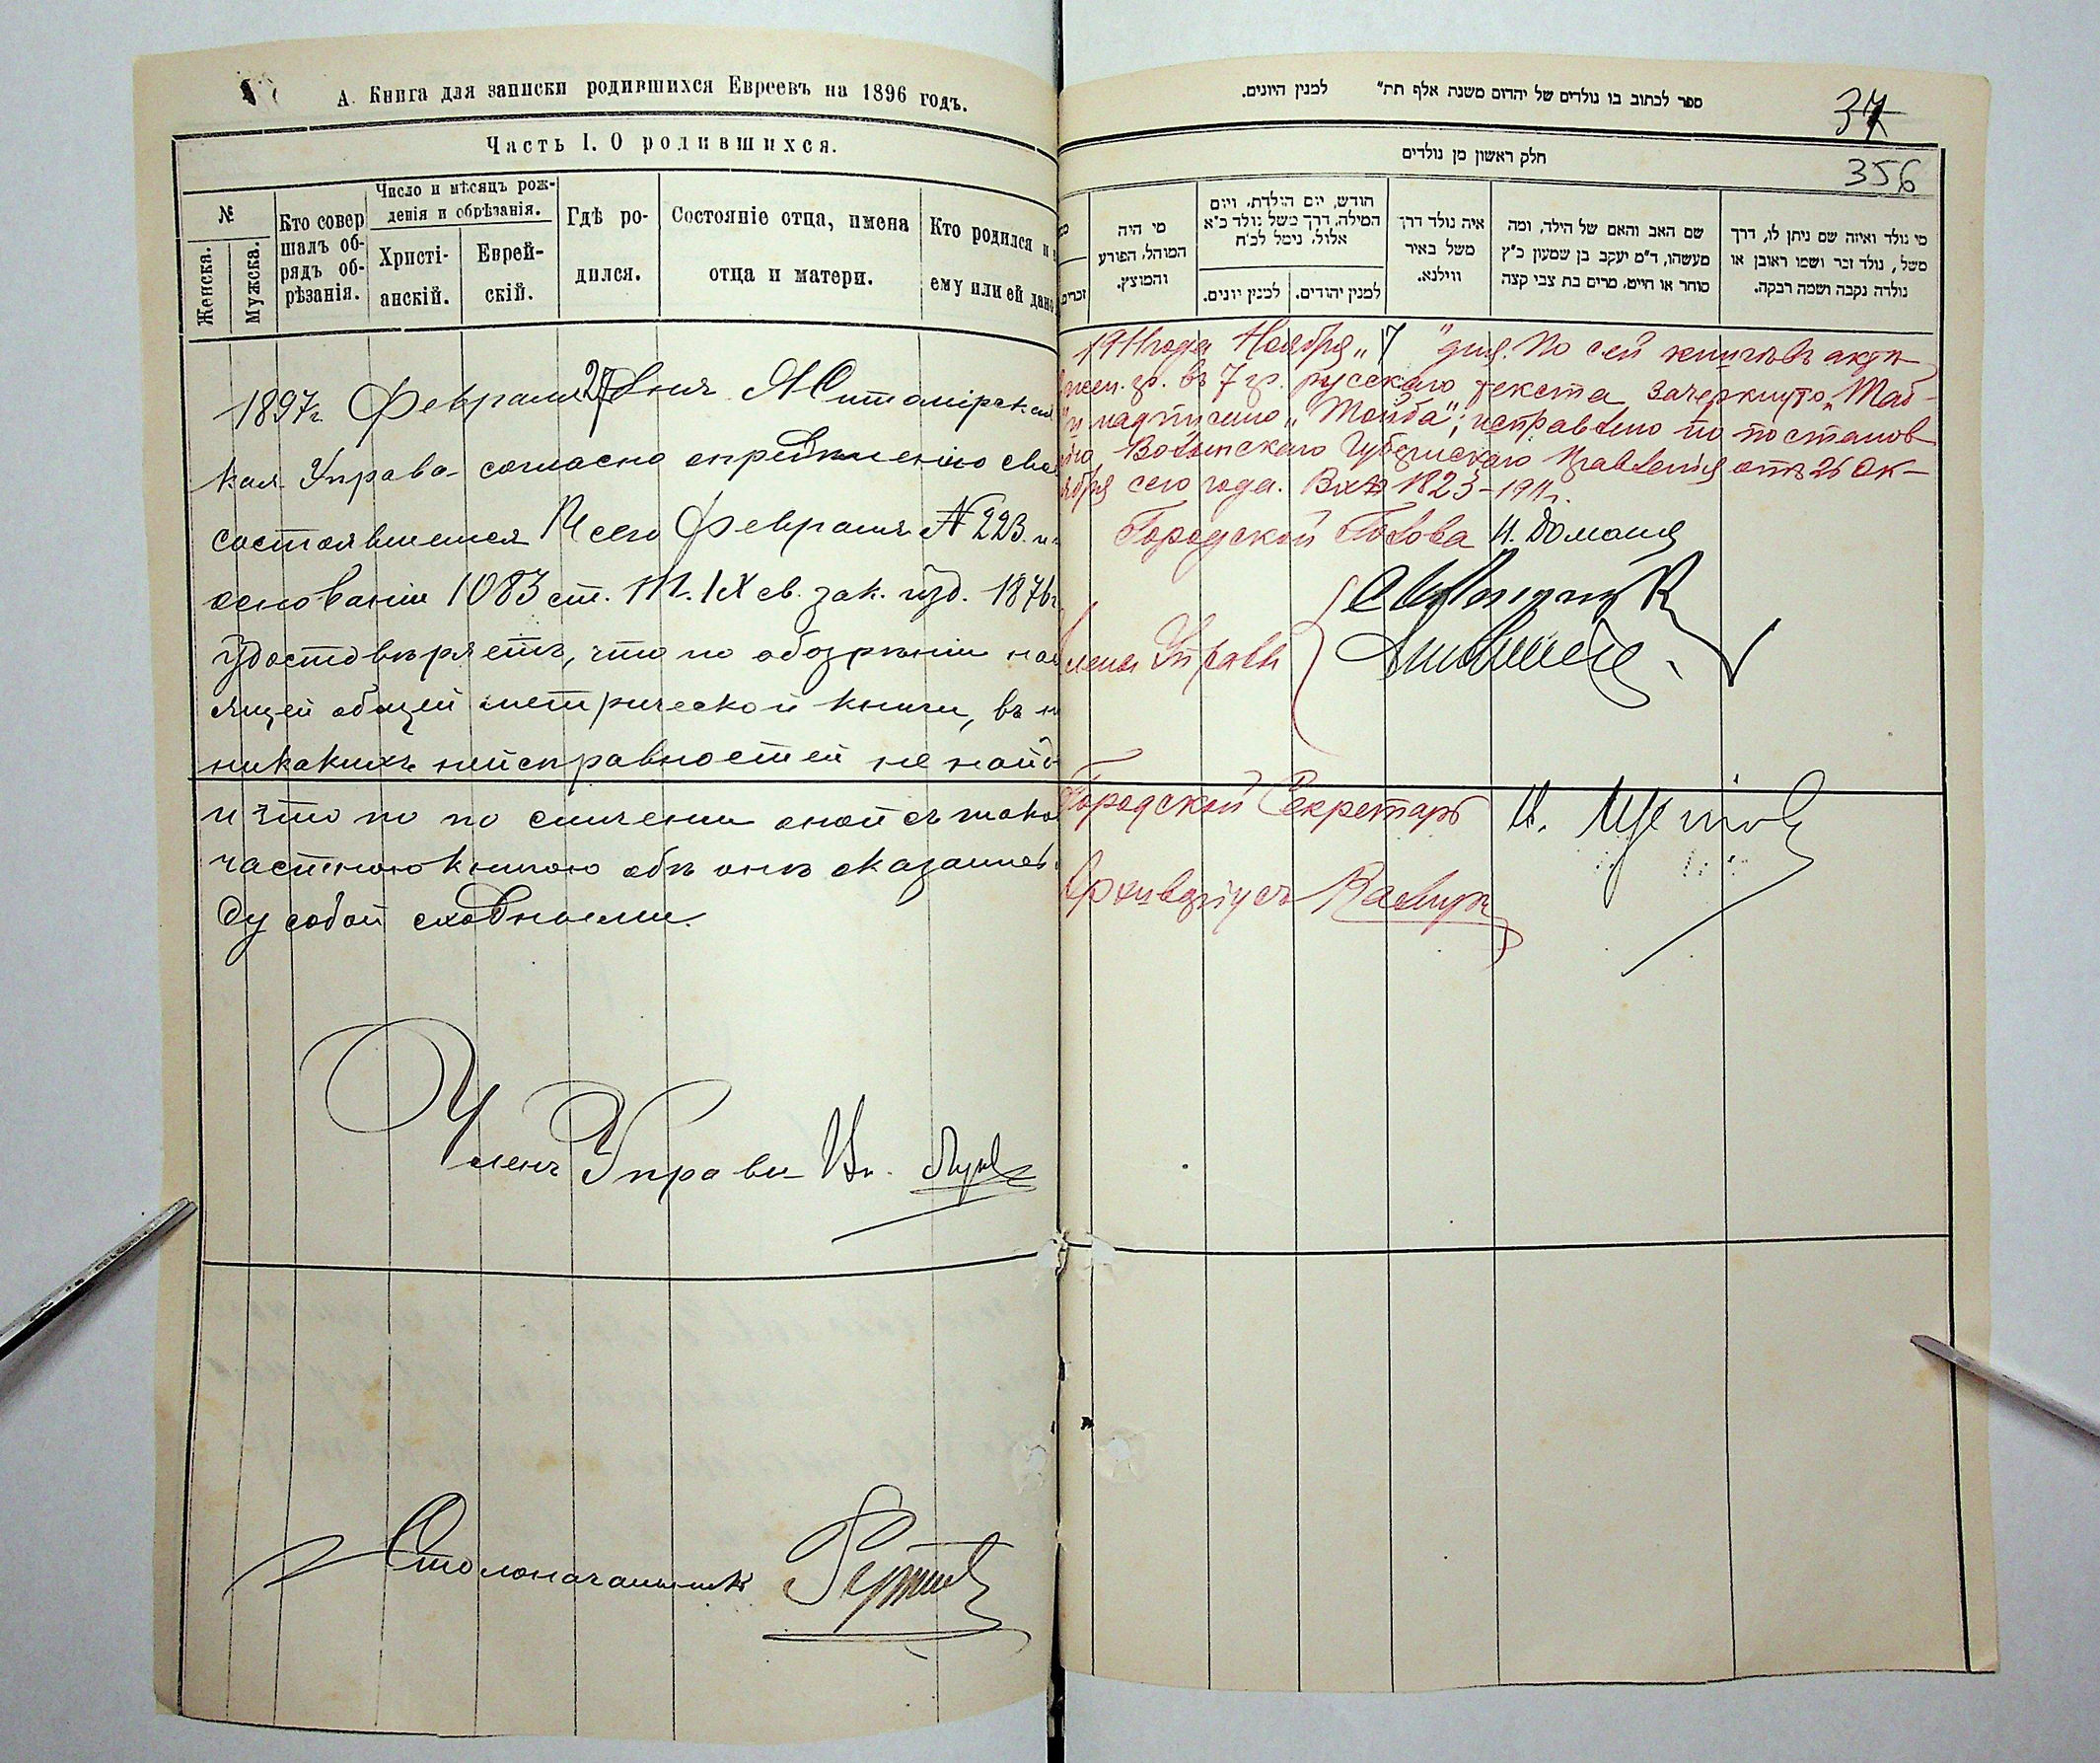 А. Книга для записки родившихся Евреевъ на 1896 годъ.
Часть I. О родившихся.
№
Женска.
Мужска.
Кто совер
шалъ об-
рядъ об-
рѣзанія.
Число и мѣсяцъ рож-
денія и обрѣзанія.
Христі-
анскій.
Еврей-
скій.
Гдѣ ро-
дился.
Состояніе отца, имена
отца и матери.
Кто родился и
ему или ей дано
1897 г. Февраля 27 дня Житомірская
кая Управа согласно опредѣленію
состоявшемся сего Февраля № 223
основаніи 1083 ст. т. IX св. зак. изд. 1876 г
удостовѣряетъ, что по обозрѣніи
ящей общей метрической книги, въ
никакихъ неисправностей не
и что по по сличеніи оной съ
частною книгою обѣ онѣ оказались
ду собой сходными.
Членъ Управы
Столоначальникъ
ספר לכתוב בו נולדים של יהדום משנת אלף תת״ למנין היונים.
37
356
חלק ראשון מן נולדים
מי נולד ואיזה שם ניתן לו, דרך
משל, נולד זכר ושמו ראובן או
נולדה נקבה ושמה רבקה.
שם האב והאם של הילד, ומה
מעשהו, ד״מ יעקב בן שמעון כ״ץ
סוחר או חייט, מרים בת צבי קצה
איה נולד דרך
משל באיר
ווילנא.
חודש, יום הולדת, ויום
המילה, דרך משל נולד כ״א
אלול, נימל לכ״ח
למנין יהודים.
למנין יונים.
מי היה
המוהל, הפורע
והמוצץ.
זכרים
1911 года Ноября „7" дня. По сей книгѣ въ актѣ
жен. гр. въ 7 гр. русскаго текста зачеркнуто „Таб-
и надписано „Тойба"; исправлено по постанов
Волынскаго Губернскаго Правленія отъ 26 Ок-
ября сего года. Вх. № 1823-1911 г.
Городской Голова
Члены Управы
Городской Секретарь
Архиваріусъ